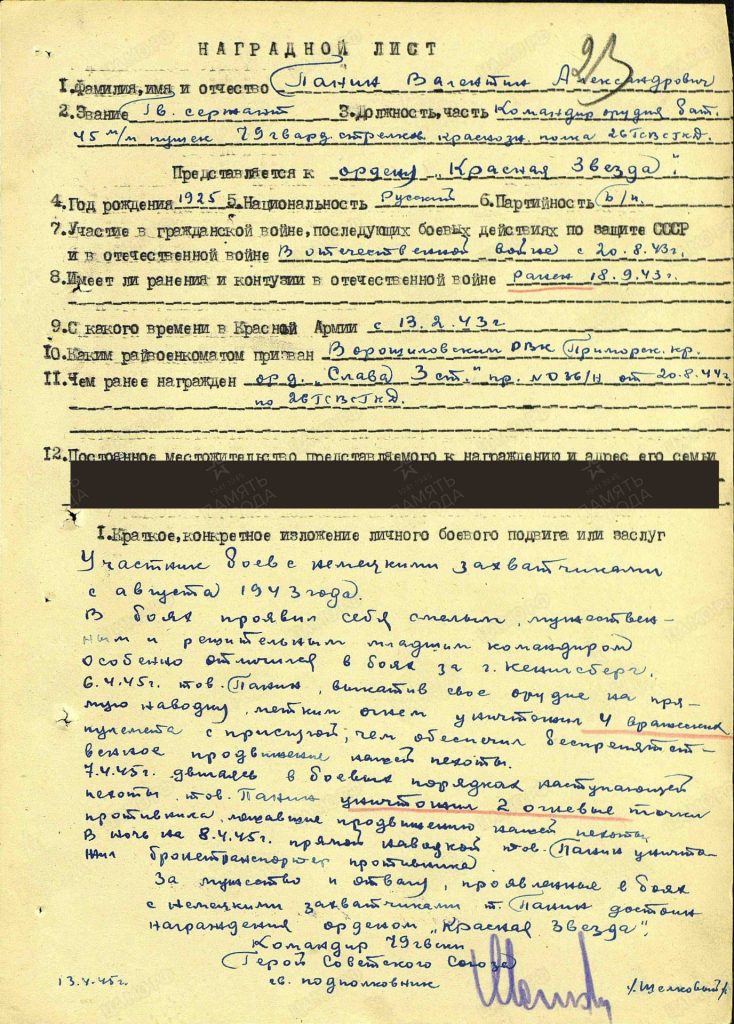 93
НАГРАДНОЙ ЛИСТ
1.Фамилия,имя и отчество Панин Валентин Александрович
2.Звание Гв. сержант 3.Должность,часть Командир орудия бат.
45 м/м пушек 79 гвард. стрелков. краснозн. полка 26ГСВСГКД.
Представляется к ордену „Красная Звезда".
4.Год рождения 1925 5.Национальность Русский 6.Партийность б/п.
7.Участие в гражданской войне,последующих боевых действиях по защите СССР
и в отечественной войне В отечественной войне с 20.8.43г.
8.Имеет ли ранения и контузии в отечественной войне ранен 18.9.43г.
9.С какого времени в Красной Армии с 13.2.43г
10.Каким райвоенкоматом призван Ворошиловским РВК Приморск. кр.
11.Чем ранее награжден орд. „Слава 3 ст." пр. №036/н от 20.8.44г.
по 26ГСВСГКД.
12.Постоянное местожительство представляемого к награждению и адрес его семьи
ПАМЯТЬ НАРОДА
1.Краткое,конкретное изложение личного боевого подвига или заслуг
Участник боев с немецкими захватчиками
с августа 1943 года.
В боях проявил себя смелым, мужествен-
ным и решительным младшим командиром
Особенно отличился в боях за г. Кенигсберг.
6.4.45г. тов. Панин, выкатив свое орудие на пря-
мую наводку, метким огнем уничтожил 4 вражеских
пулемета с прислугой, чем обеспечил беспрепятст-
венное продвижение нашей пехоты.
7.4.45г. двигаясь в боевых порядках наступающей
пехоты тов. Панин уничтожил 2 огневые точки
противника, мешавшие продвижению нашей пехоты.
В ночь на 8.4.45г. прямой наводкой тов. Панин уничто-
жил бронетранспортер противника.
За мужество и отвагу, проявленные в боях
с немецкими захватчиками т. Панин достоин
награждения орденом „Красная Звезда".
Командир 79 гвскп
Герой Советского Союза
13.4.45г. гв. подполковник /Щелковый/